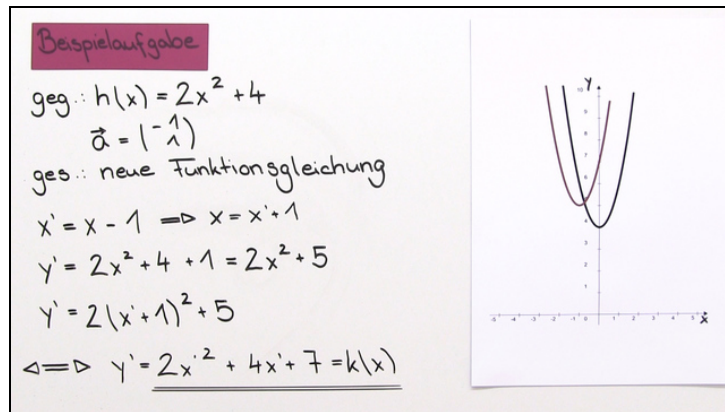 Beispielaufgabe
geg.: h(x) = 2x² + 4
a⃗ = (-1 1)
ges.: neue Funktionsgleichung
x' = x - 1 ⇒ x = x' + 1
y' = 2x² + 4 + 1 = 2x² + 5
y' = 2(x' + 1)² + 5
⇔ y' = 2x'² + 4x' + 7 = k(x)
Y
10
9
8
7
6
5
4
3
2
1
-5 -4 -3 -2 -1 0 1 2 3 4 5 X